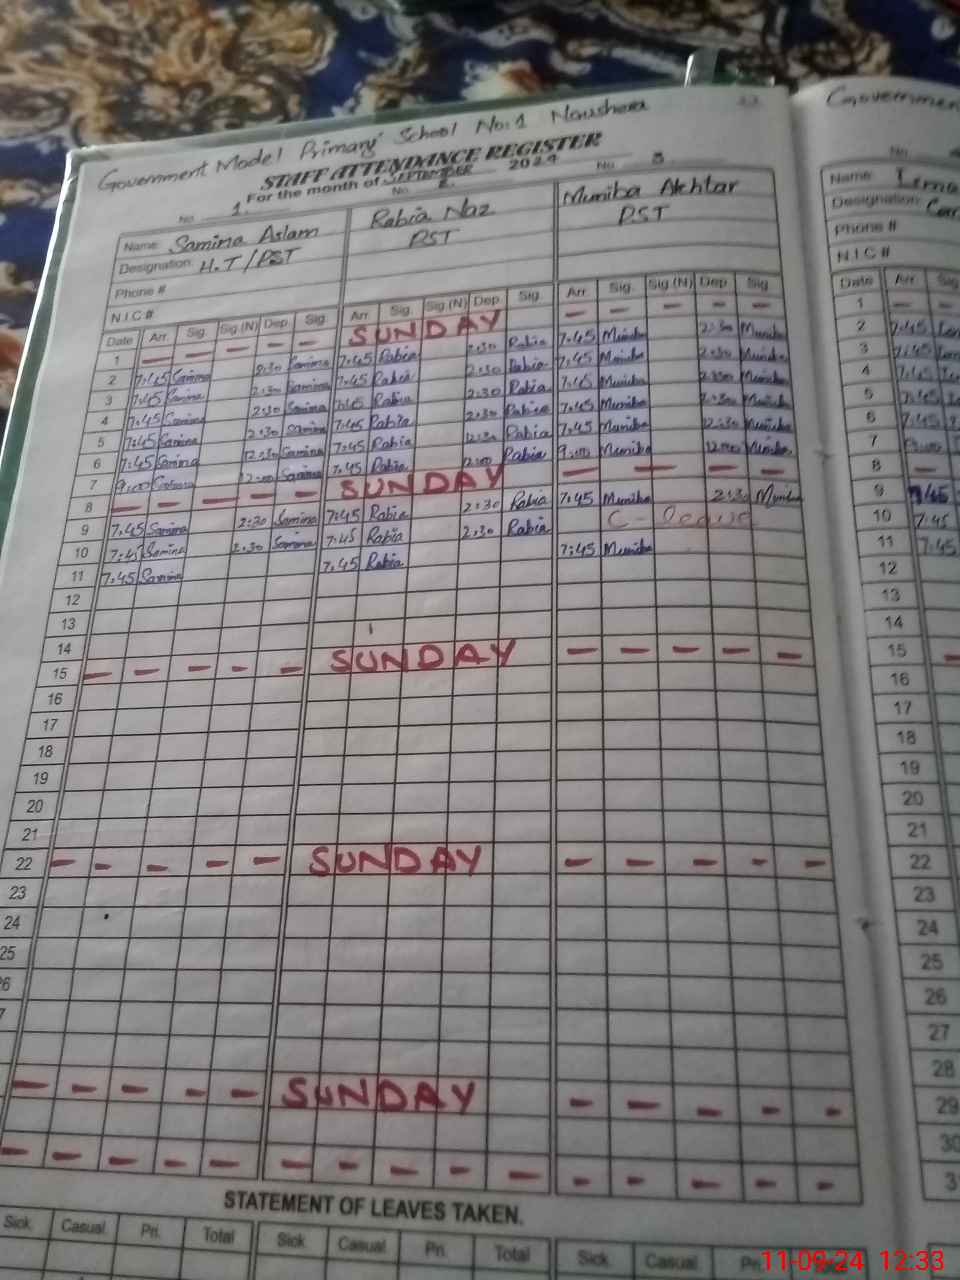 Government Model Primary School No:1 Noushera
STAFF ATTENDANCE REGISTER
For the month of SEPTEMBER 2024
No. 1. No. 2. No. 3.
Name: Samina Aslam Rabia Naz Muniba Akhtar
Designation: H.T/PST PST PST
Phone #
N.I.C #
Date Arr. Sig. Sig.(N) Dep. Sig. Arr. Sig. Sig.(N) Dep. Sig. Arr. Sig. Sig.(N) Dep. Sig.
1 — — — — — SUNDAY — — — — —
2 7:45 Samina 2:30 Samina 7:45 Rabia 2:30 Rabia 7:45 Muniba 2:30 Muniba
3 7:45 Samina 2:30 Samina 7:45 Rabia 2:30 Rabia 7:45 Muniba 2:30 Muniba
4 7:45 Samina 2:30 Samina 7:45 Rabia 2:30 Rabia 7:45 Muniba 2:30 Muniba
5 7:45 Samina 2:30 Samina 7:45 Rabia 2:30 Rabia 7:45 Muniba 2:30 Muniba
6 7:45 Samina 12:30 Samina 7:45 Rabia 12:30 Rabia 7:45 Muniba 12:30 Muniba
7 9:00 Samina 12:00 Samina 7:45 Rabia 12:00 Rabia 9:00 Muniba 12:00 Muniba
8 — — — — — SUNDAY — — — —
9 7:45 Samina 2:30 Samina 7:45 Rabia 2:30 Rabia 7:45 Muniba 2:30 Muniba
10 7:45 Samina 2:30 Samina 7:45 Rabia 2:30 Rabia C-leave
11 7:45 Samina 7:45 Rabia 7:45 Muniba
12
13
14
15 — — — — — SUNDAY — — — — —
16
17
18
19
20
21
22 — — — — — SUNDAY — — — — —
23
24
25
26
7
— — — — — SUNDAY — — — — —
— — — — — — — — — — — — — — —
STATEMENT OF LEAVES TAKEN.
Sick. Casual. Pri. Total Sick. Casual. Pri. Total Sick. Casual. Pri.
Governmen
No.
Name:
Designation:
Phone #
N.I.C #
Date Arr. Sig
1 — —
2 7:45
3 7:45
4 7:45
5 7:45
6 7:45
7 9:00
8 —
9 7:45
10 7:45
11 7:45
12
13
14
15 —
16
17
18
19
20
21
22
23
24
25
26
27
28
29
30
3
11-09-24 12:33